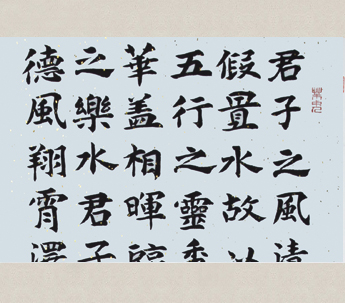 君子之風清
假置水故
五行之靈
華盖相暉
之樂水君子
德風翔霄